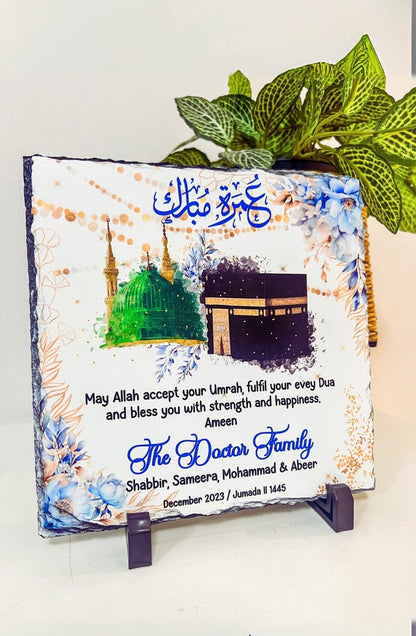 عُمرَة مُبارك
May Allah accept your Umrah, fulfil your evey Dua
and bless you with strength and happiness.
Ameen
The Doctor Family
Shabbir, Sameera, Mohammad & Abeer
December 2023 / Jumada II 1445